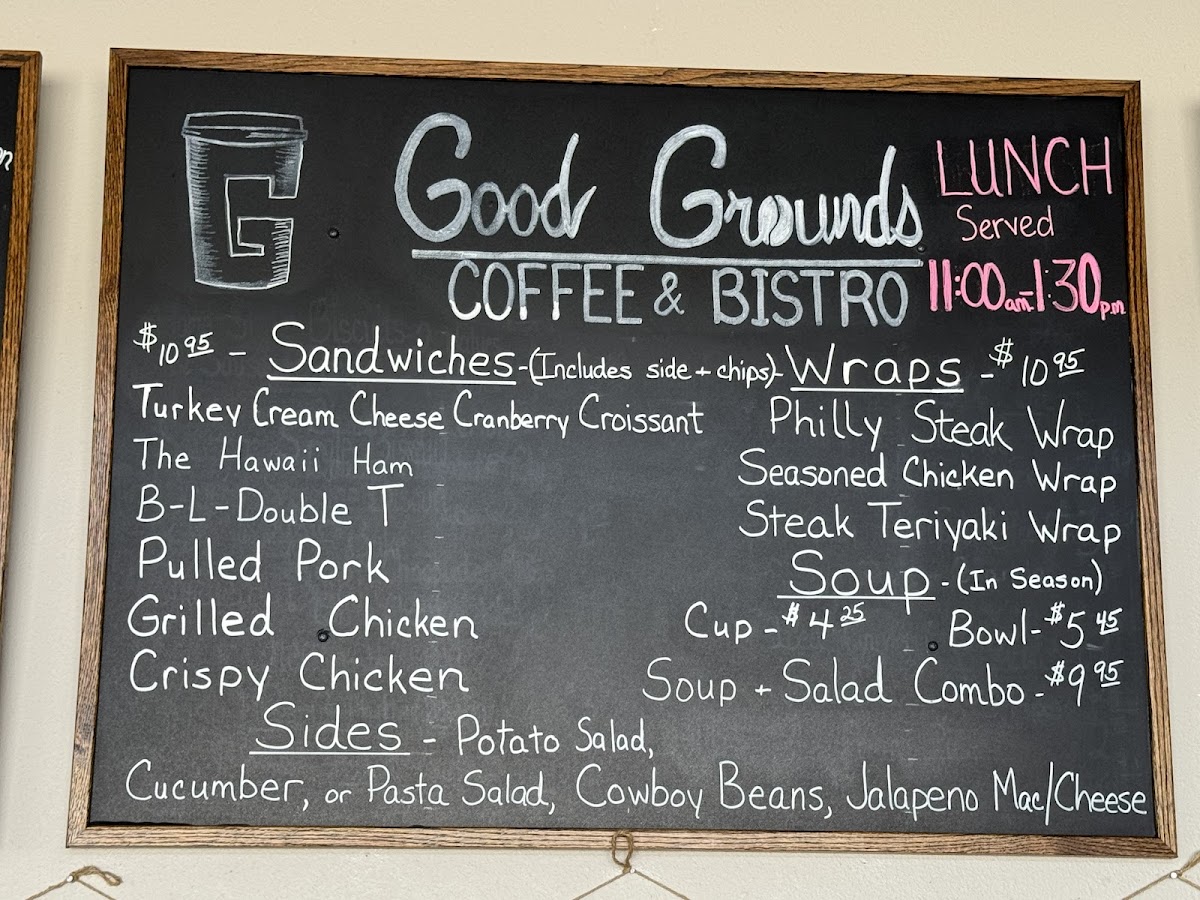 G
Good Grounds
COFFEE & BISTRO
LUNCH
Served
11:00am-1:30pm
$10.95 - Sandwiches - (Includes side + chips) - Wraps - $10.95
Turkey Cream Cheese Cranberry Croissant
The Hawaii Ham
B-L-Double T
Pulled Pork
Grilled Chicken
Crispy Chicken
Philly Steak Wrap
Seasoned Chicken Wrap
Steak Teriyaki Wrap
Soup - (In Season)
Cup - $4.25 Bowl - $5.45
Soup + Salad Combo - $9.95
Sides - Potato Salad,
Cucumber, or Pasta Salad, Cowboy Beans, Jalapeno Mac/Cheese